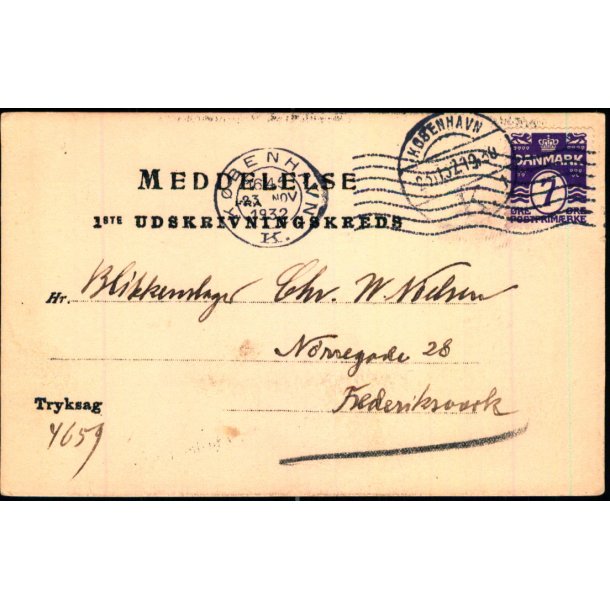 KØBENHAVN
DANMARK
7
ØRE ØRE
POSTFRIMÆRKE
KØBENHAVN
23 NOV
1932
K.
MEDDELELSE
1STE UDSKRIVNINGSKREDS
Hr. Blikkenslager Chr. W. Nielsen
Nørregade 28
Frederiksværk
Tryksag
4659